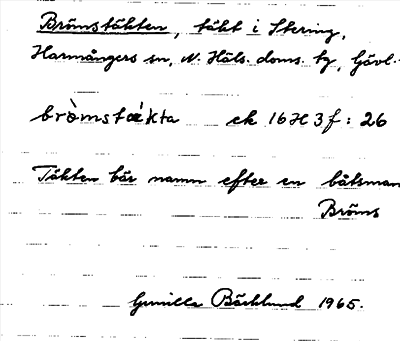 Brömstäkten, täkt i Stering,
Harmångers sn, N. Häls. doms. tg, Gävl.
brò̀mstæ̀kta ek 16H3f: 26
Täkten bär namn efter en båtsman
Bröms
Gunilla Bäcklund 1965.